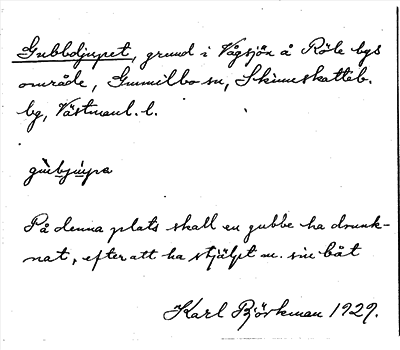 Gubbdjupet, grund i Vågsjön å Röle bys
område, Gunnilbo sn, Skinnskatteb.
bg, Västmanl. l.
På denna plats skall en gubbe ha drunk-
nat, efter att ha stjälpt m. sin båt
Karl Björkman 1929.